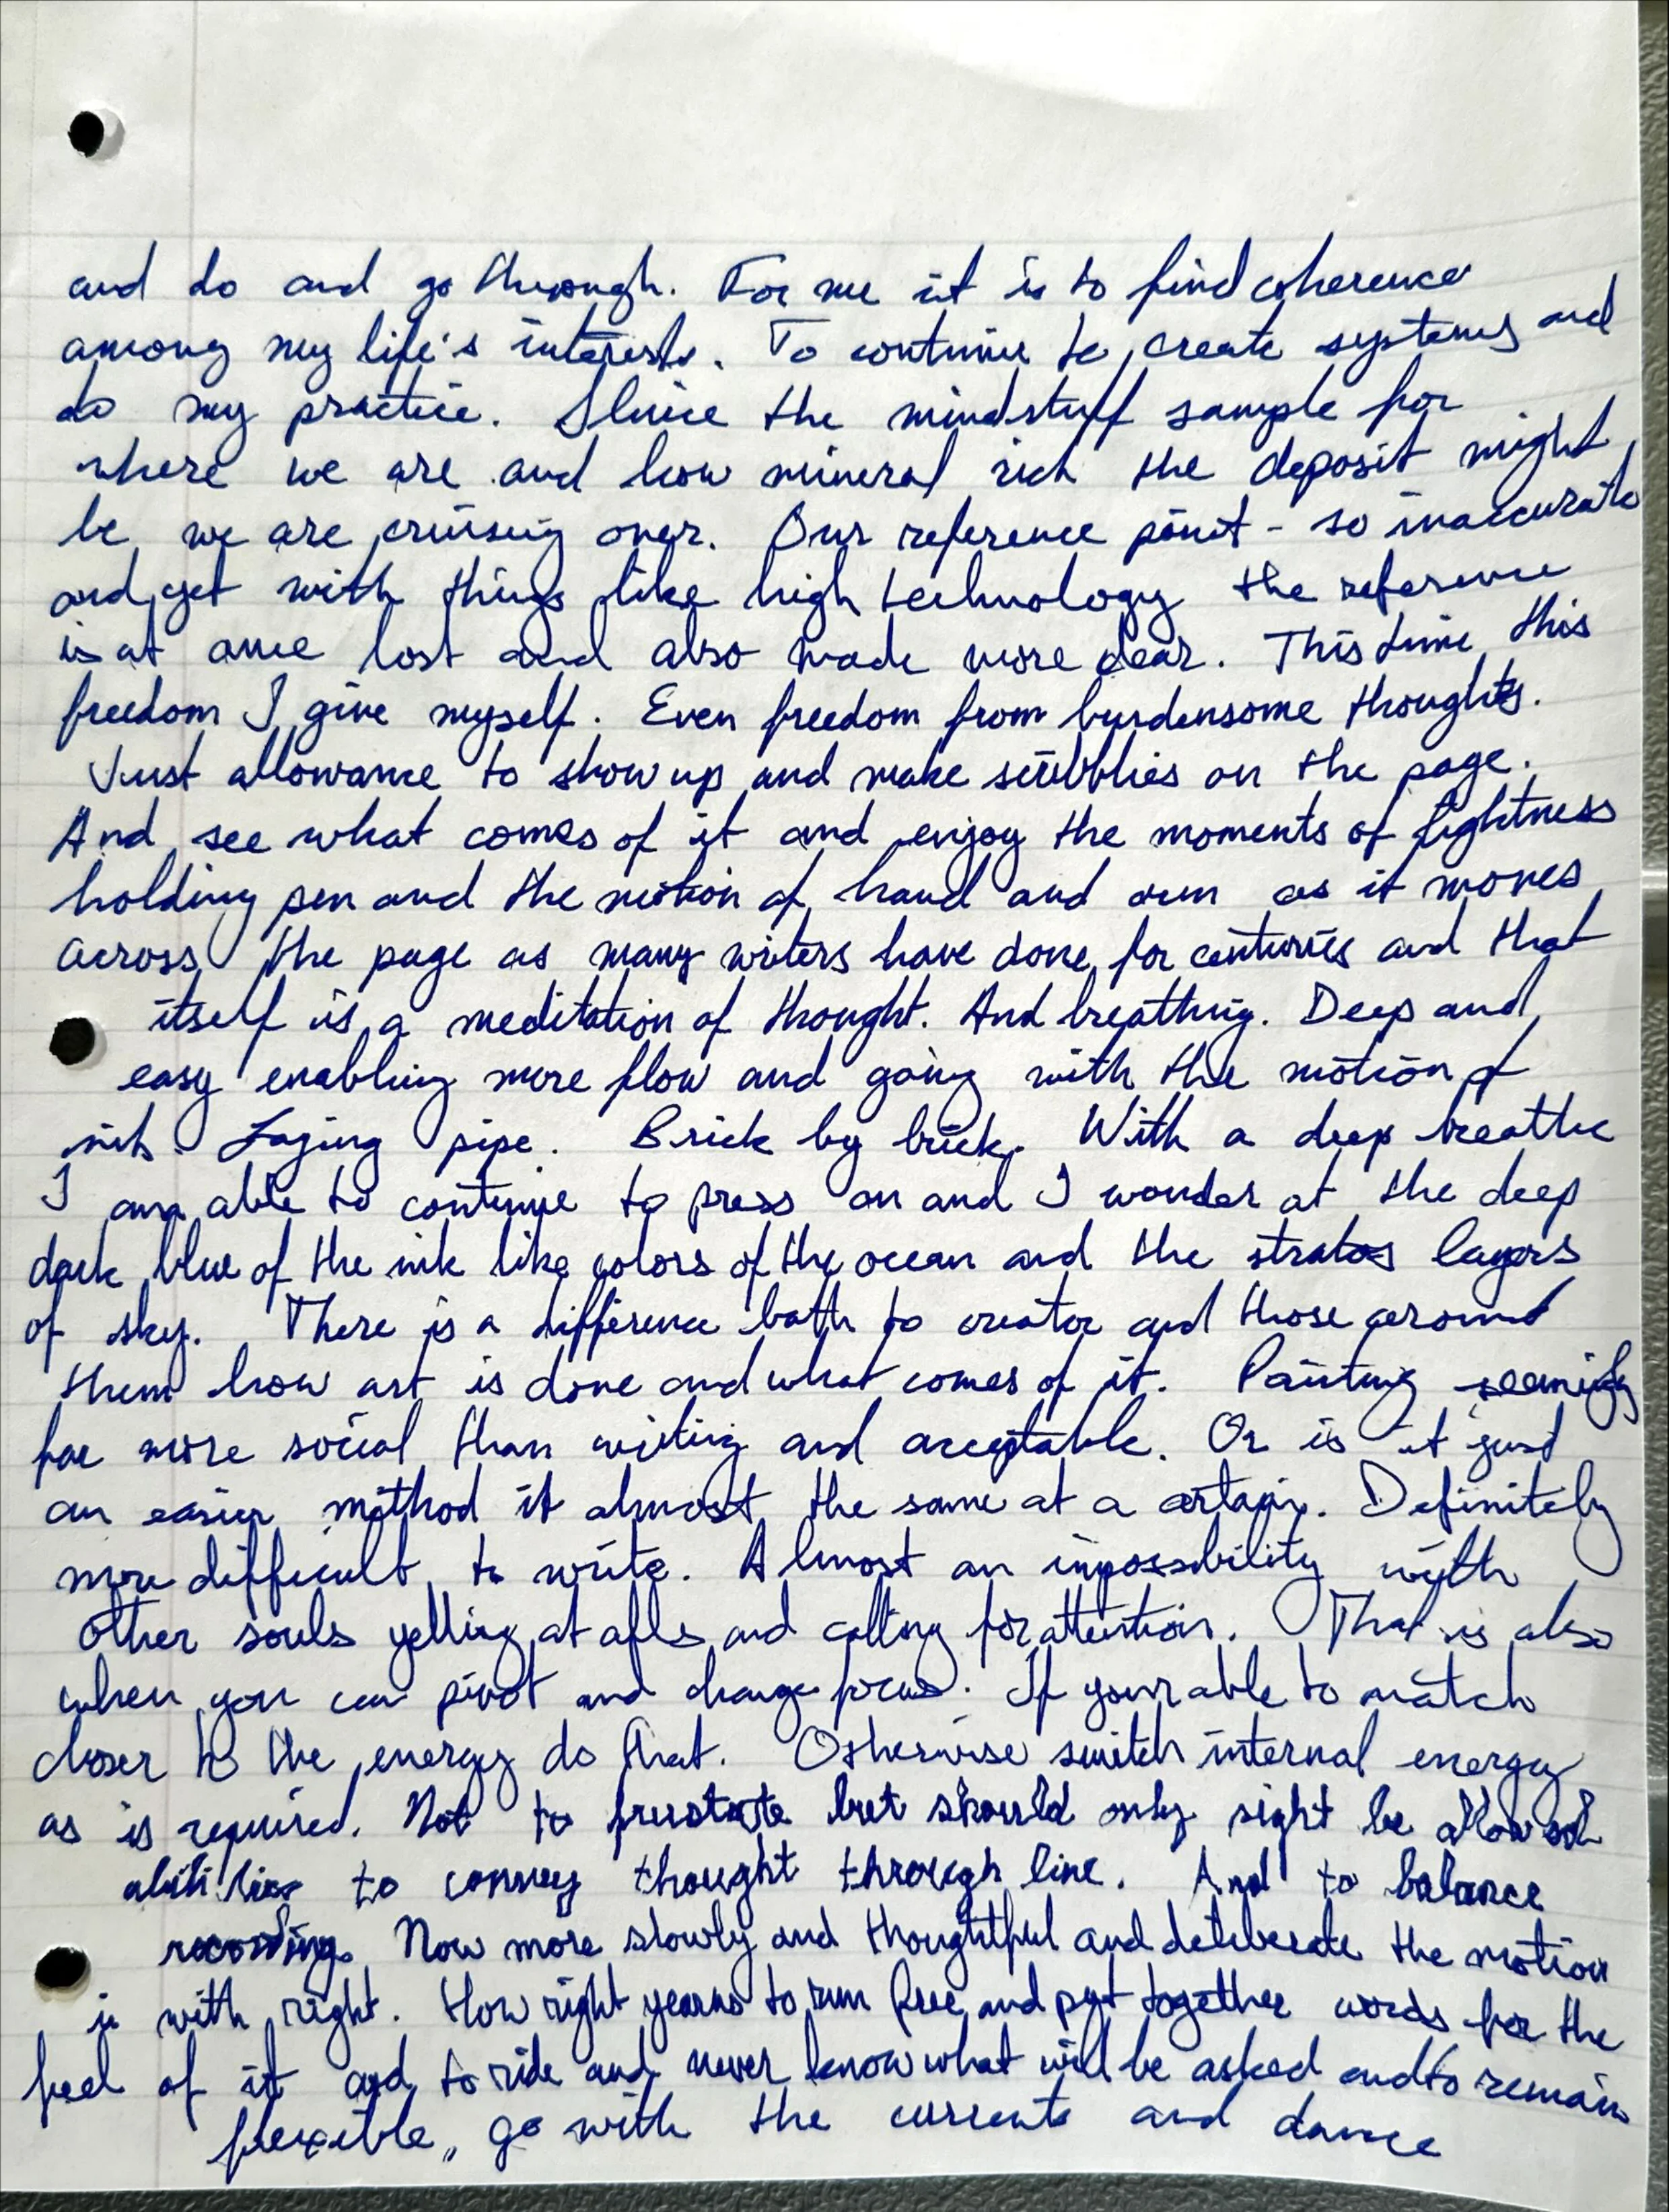 and do and go through. For me it is to find coherence
among my life's interests. To continue to create systems and
do my practice. Sluice the mindstuff sample for
where we are and how mineral rich the deposit might
be, we are cruising over. Our reference point - so inaccurate
and yet with things like high technology the reference
is at once lost and also made more clear. This time this
freedom I give myself. Even freedom from burdensome thoughts.
Just allowance to show up and make scribblies on the page.
And see what comes of it and enjoy the moments of lightness
holding pen and the motion of hand and arm as it moves
across the page as many writers have done for centuries and that
itself is a meditation of thought. And breathing. Deep and
easy enabling more flow and going with the motion of
ink. Laying pipe. Brick by brick. With a deep breathe
I am able to continue to press on and I wonder at the deep
dark blue of the ink like colors of the ocean and the stratos layers
of sky. There is a difference both to creator and those around
them how art is done and what comes of it. Painting seemingly
far more social than writing and acceptable. Or is it just
an easier method it almost the same at a Definitely
more difficult to write. Almost an impossibility with
other souls yelling at and calling for attention. That is also
when you can pivot and change focus. If your able to match
closer to the energy do that. Otherwise switch internal energy
as is required. Not to frustrate but should only right be allowed
abilities to convey thought through line. And to balance
recording. Now more slowly and thoughtful and deliberate the motion
is with right. How right yearns to run free and put together words for the
feel of it and to ride and never know what will be asked and to remain
flexible, go with the currents and dance